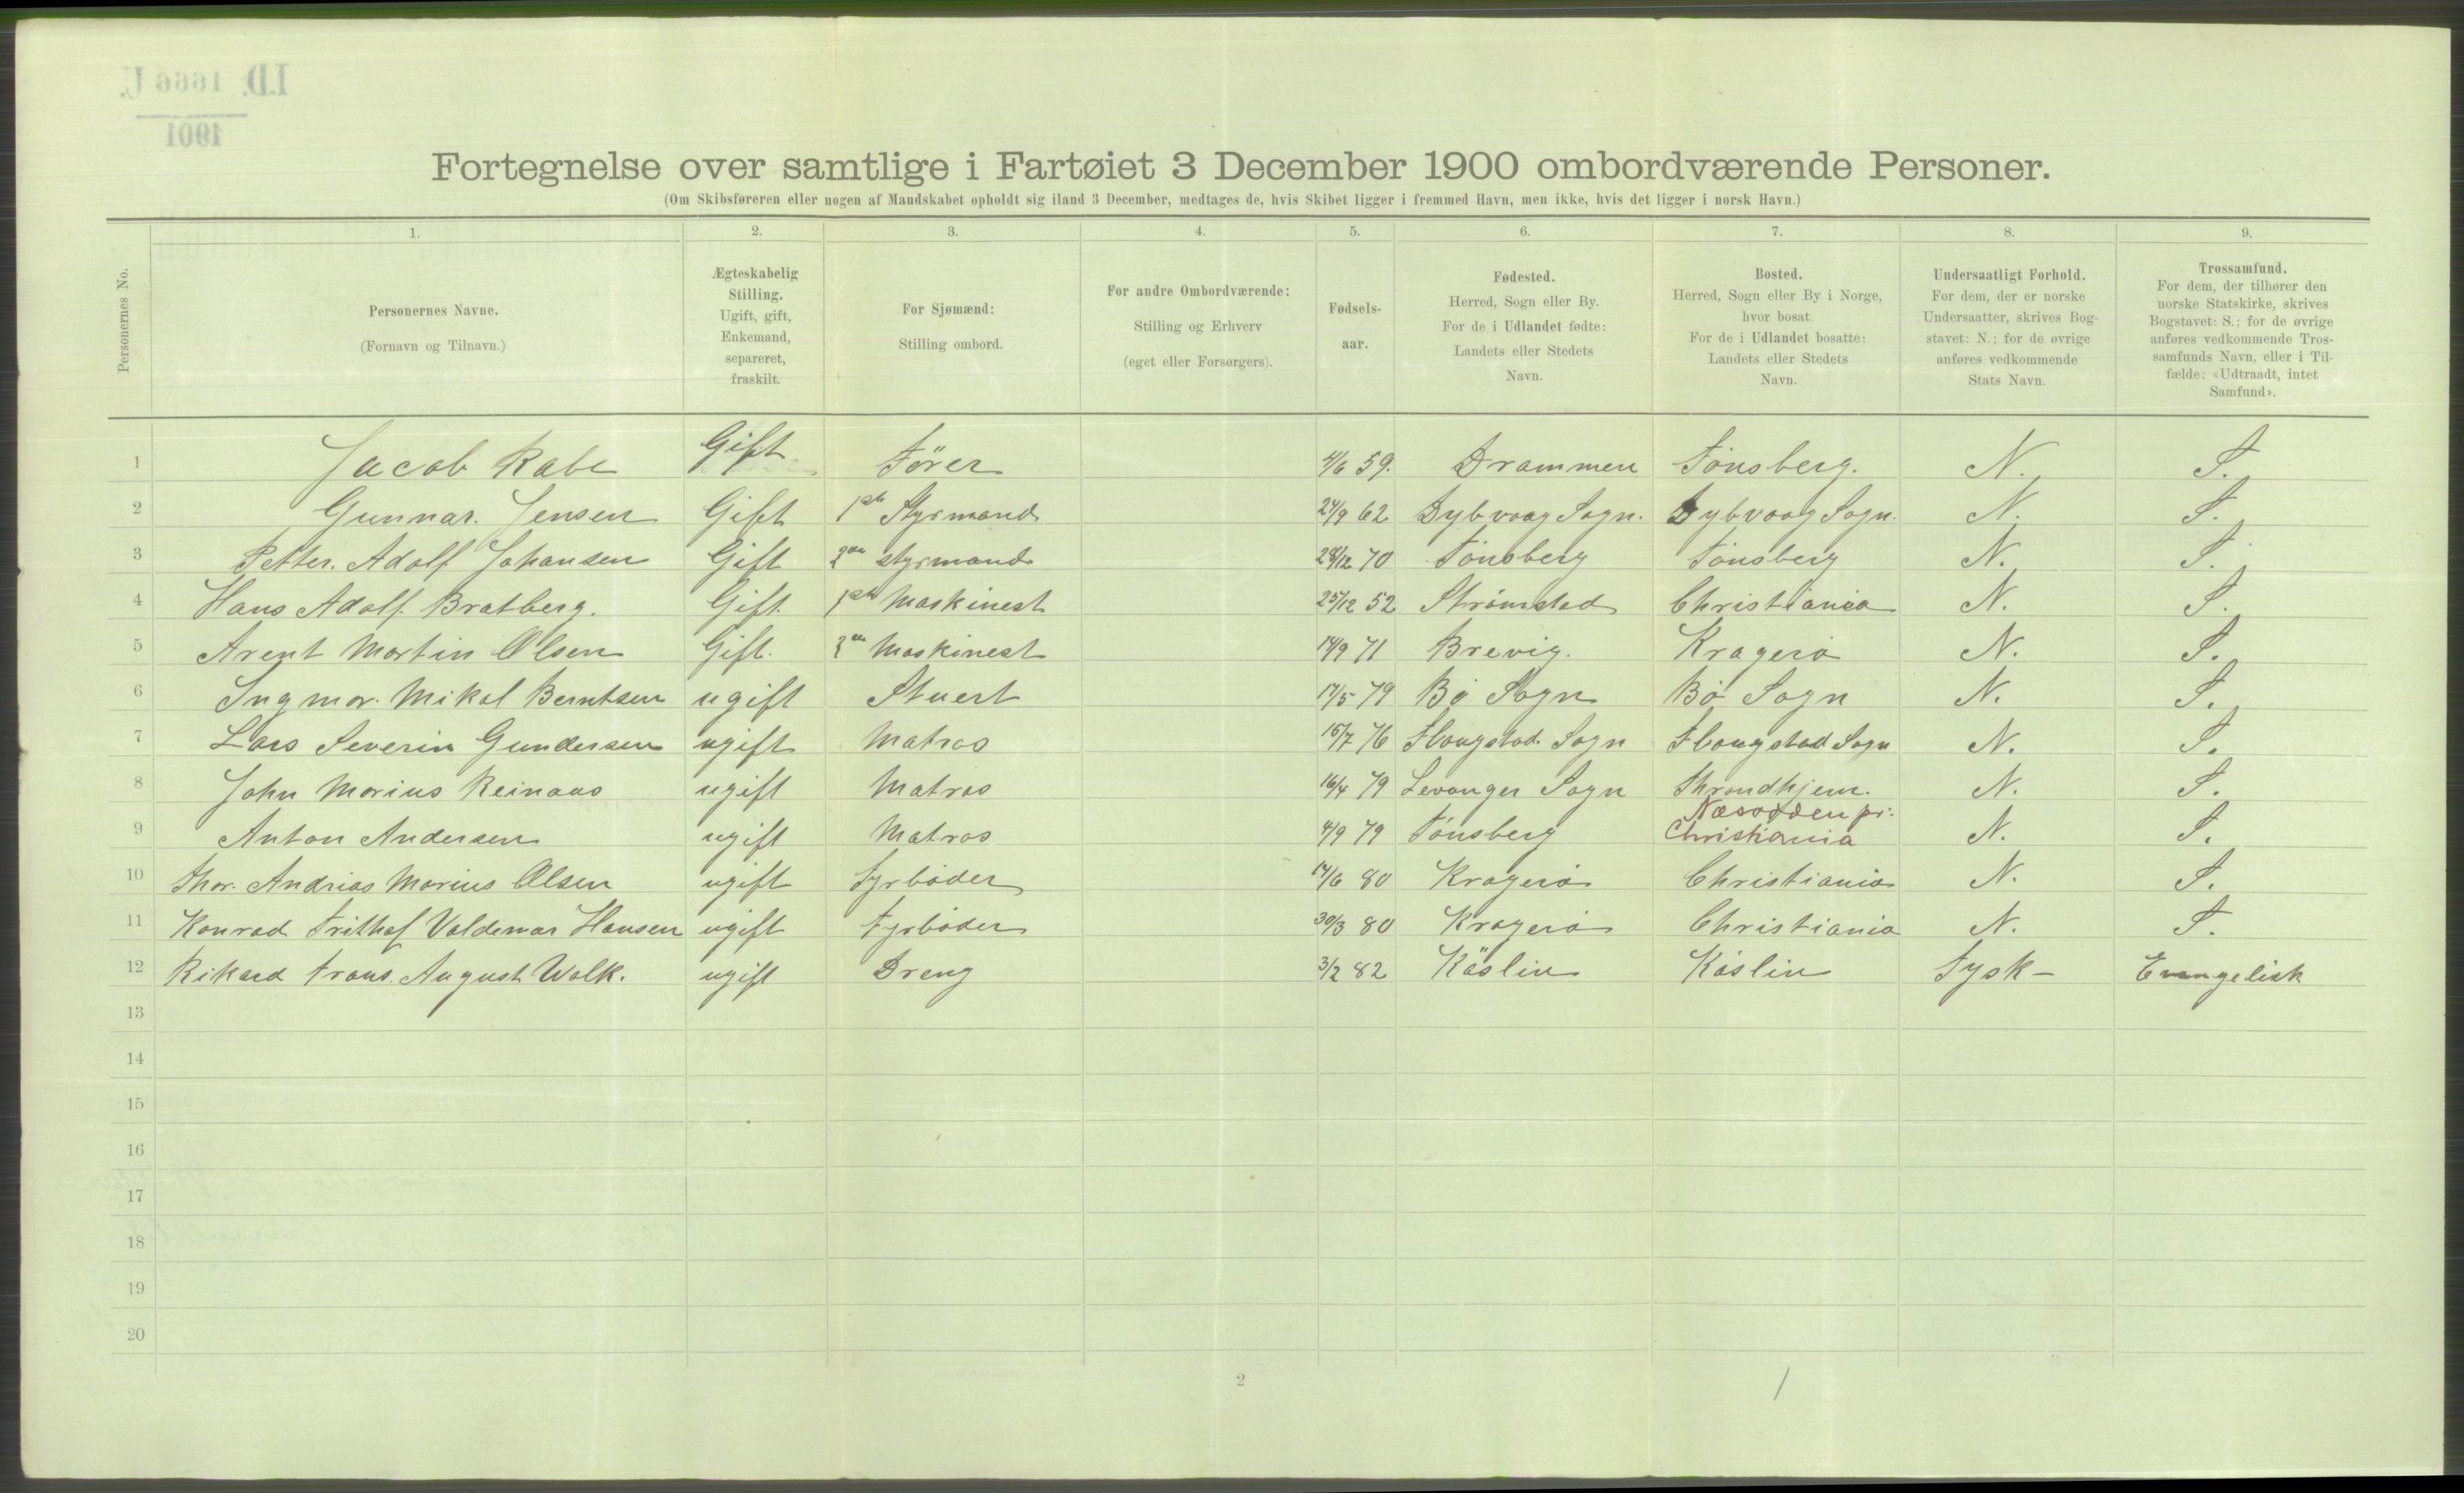 I.D. 1666 U.
1901
Fortegnelse over samtlige i Fartøiet 3 December 1900 ombordværende Personer.
(Om Skibsføreren eller nogen af Mandskabet opholdt sig iland 3 December, medtages de, hvis Skibet ligger i fremmed Havn, men ikke, hvis det ligger i norsk Havn.)
Personernes No.
1. 2. 3. 4. 5. 6. 7. 8. 9.
Personernes Navne.
(Fornavn og Tilnavn.)
Ægteskabelig
Stilling.
Ugift, gift,
Enkemand,
separeret,
fraskilt.
For Sjømænd:
Stilling ombord.
For andre Ombordværende:
Stilling og Erhverv
(eget eller Forsørgers).
Fødsels-
aar.
Fødested.
Herred, Sogn eller By.
For de i Udlandet fødte:
Landets eller Stedets
Navn.
Bosted.
Herred, Sogn eller By i Norge,
hvor bosat.
For de i Udlandet bosatte:
Landets eller Stedets
Navn.
Undersaatligt Forhold.
For dem, der er norske
Undersaatter, skrives Bog-
stavet: N.; for de øvrige
anføres vedkommende
Stats Navn.
Trossamfund.
For dem, der tilhører den
norske Statskirke, skrives
Bogstavet: S.; for de øvrige
anføres vedkommende Tros-
samfunds Navn, eller i Til-
fælde: «Udtraadt, intet
Samfund».
1 Jacob Rabe Gift Förer 4/6 59. Drammen Tönsberg. N. S.
2 Gunnar. Jensen Gift 1ste Styrmand 24/9 62 Dybvaag Sogn. Dybvaag Sogn. N. S.
3 Petter. Adolf Johansen Gift 2den styrmand 28/12 70 Tönsberg Tönsberg N. S.
4 Hans Adolf Bratberg. Gift 1ste Maskinest 25/12 52 Strömstad Christiania N. S.
5 Arent Martin Olsen Gift. 2den Maskinest 14/9 71 Brevig. Kragerö N. S.
6 Ingmar. Mikal Berntsen ugift Stuert 17/5 79 Bö Sogn Bö Sogn N. S.
7 Lars Severin Gundersen ugift Matros 15/7 76 Sogn Sogn N. S.
8 John Marius Reinaas ugift Matros 16/4 79 Levanger Sogn Throndhjem. N. S.
9 Anton Andersen ugift Matros 4/9 79 Tönsberg Næsodden pr. Christiania N. S.
10 Thor. Andrias Marius Olsen ugift Fyrböder 17/6 80 Kragerö Christiania N. S.
11 Konrad Frithof Valdemar Hansen ugift Fyrböder 30/3 80 Kragerö Christiania N. S.
12 Rikard Frans. August Wolk. ugift Dreng 3/2 82 Köslin Köslin Tysk - Evangelisk
13
14
15
16
17
18
19
20
2